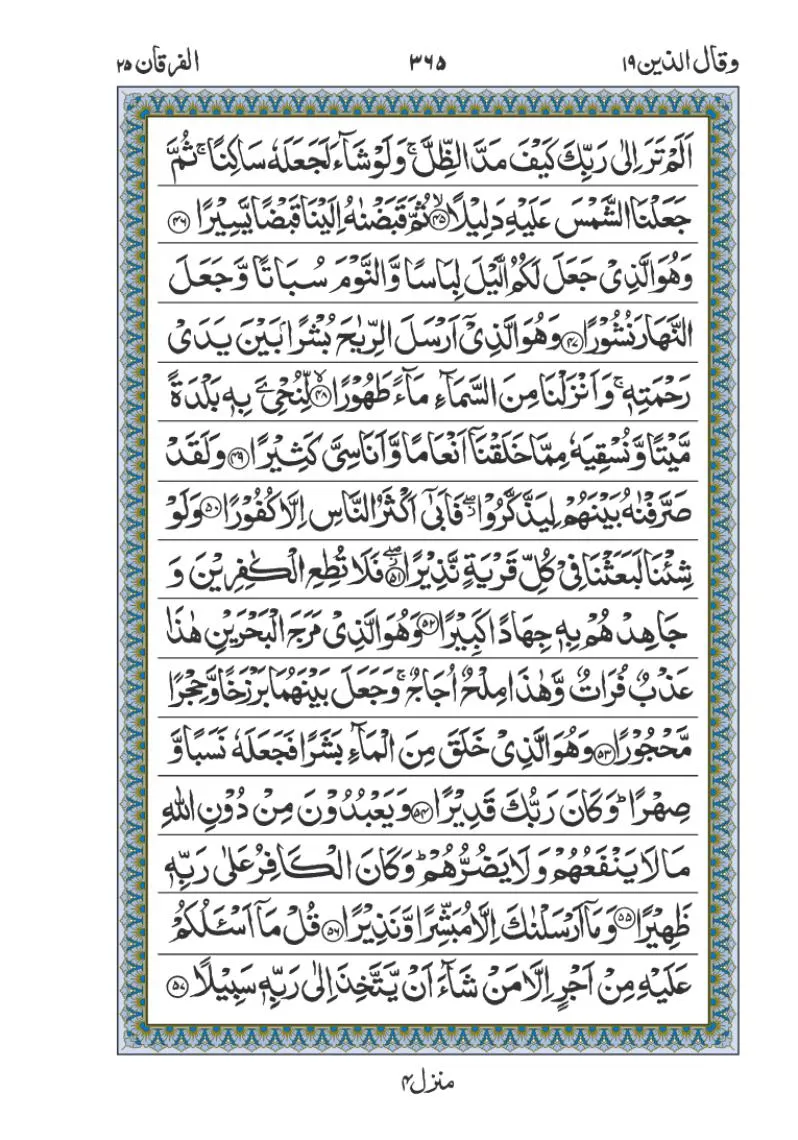 وقال الذين ١٩
٣٦٥
الفرقان ٢٥
اَلَمْ تَرَ اِلٰى رَبِّكَ كَيْفَ مَدَّ الظِّلَّ ۚ وَلَوْ شَآءَ لَجَعَلَهٗ سَاكِنًا ۚ ثُمَّ
جَعَلْنَا الشَّمْسَ عَلَيْهِ دَلِيْلًا ۙ﴿۴۵﴾ ثُمَّ قَبَضْنٰهُ اِلَيْنَا قَبْضًا يَّسِيْرًا ﴿۴۶﴾
وَهُوَ الَّذِيْ جَعَلَ لَكُمُ الَّيْلَ لِبَاسًا وَّالنَّوْمَ سُبَاتًا وَّجَعَلَ
النَّهَارَ نُشُوْرًا ﴿۴۷﴾ وَهُوَ الَّذِيْۤ اَرْسَلَ الرِّيٰحَ بُشْرًۢا بَيْنَ يَدَيْ
رَحْمَتِهٖ ۚ وَاَنْزَلْنَا مِنَ السَّمَآءِ مَآءً طَهُوْرًا ۙ﴿۴۸﴾ لِّنُحْيِۦَ بِهٖ بَلْدَةً
مَّيْتًا وَّنُسْقِيَهٗ مِمَّا خَلَقْنَاۤ اَنْعَامًا وَّاَنَاسِيَّ كَثِيْرًا ﴿۴۹﴾ وَلَقَدْ
صَرَّفْنٰهُ بَيْنَهُمْ لِيَذَّكَّرُوْا ۖ فَاَبٰىۤ اَكْثَرُ النَّاسِ اِلَّا كُفُوْرًا ﴿۵۰﴾ وَلَوْ
شِئْنَا لَبَعَثْنَا فِيْ كُلِّ قَرْيَةٍ نَّذِيْرًا ۖ﴿۵۱﴾ فَلَا تُطِعِ الْكٰفِرِيْنَ وَ
جَاهِدْهُمْ بِهٖ جِهَادًا كَبِيْرًا ﴿۵۲﴾ وَهُوَ الَّذِيْ مَرَجَ الْبَحْرَيْنِ هٰذَا
عَذْبٌ فُرَاتٌ وَّهٰذَا مِلْحٌ اُجَاجٌ ۚ وَجَعَلَ بَيْنَهُمَا بَرْزَخًا وَّحِجْرًا
مَّحْجُوْرًا ﴿۵۳﴾ وَهُوَ الَّذِيْ خَلَقَ مِنَ الْمَآءِ بَشَرًا فَجَعَلَهٗ نَسَبًا وَّ
صِهْرًا ؕ وَكَانَ رَبُّكَ قَدِيْرًا ﴿۵۴﴾ وَيَعْبُدُوْنَ مِنْ دُوْنِ اللّٰهِ
مَا لَا يَنْفَعُهُمْ وَلَا يَضُرُّهُمْ ؕ وَكَانَ الْكَافِرُ عَلٰى رَبِّهٖ
ظَهِيْرًا ﴿۵۵﴾ وَمَاۤ اَرْسَلْنٰكَ اِلَّا مُبَشِّرًا وَّنَذِيْرًا ﴿۵۶﴾ قُلْ مَاۤ اَسْـَٔلُكُمْ
عَلَيْهِ مِنْ اَجْرٍ اِلَّا مَنْ شَآءَ اَنْ يَّتَّخِذَ اِلٰى رَبِّهٖ سَبِيْلًا ﴿۵۷﴾
منزل ۴